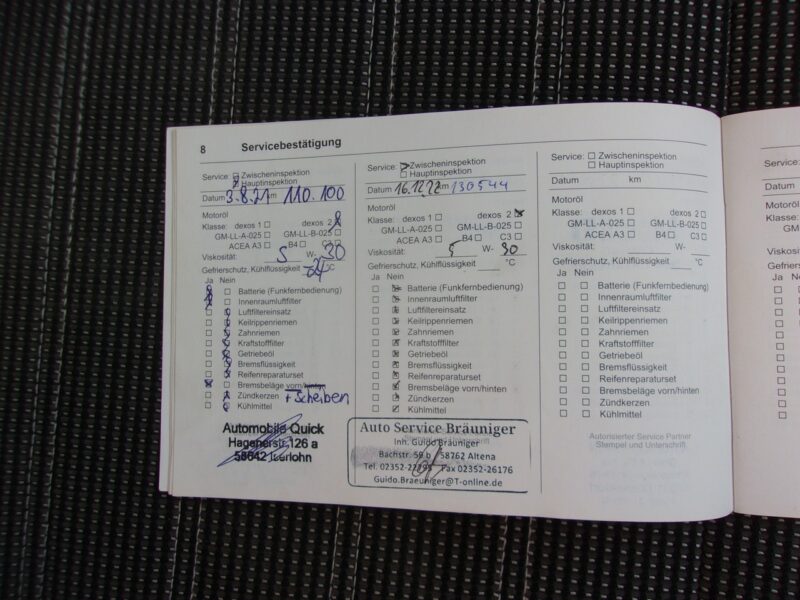 8 Servicebestätigung
Service: Zwischeninspektion
Hauptinspektion
Datum 3.8.21 km 110.100
Motoröl
Klasse: dexos 1 dexos 2
GM-LL-A-025 GM-LL-B-025
ACEA A3 B4 C3
Viskosität: 5 W- 30
Gefrierschutz, Kühlflüssigkeit °C
Ja Nein
Batterie (Funkfernbedienung)
Innenraumluftfilter
Luftfiltereinsatz
Keilrippenriemen
Zahnriemen
Kraftstofffilter
Getriebeöl
Bremsflüssigkeit
Reifenreparaturset
Bremsbeläge vorn/hinten
Zündkerzen + Scheiben
Kühlmittel
Automobile Quick
Hagenerstr.126 a
58642 Iserlohn
Service: Zwischeninspektion
Hauptinspektion
Datum 16.12.22 km 130544
Motoröl
Klasse: dexos 1 dexos 2
GM-LL-A-025 GM-LL-B-025
ACEA A3 B4 C3
Viskosität: 5 W- 30
Gefrierschutz, Kühlflüssigkeit °C
Ja Nein
Batterie (Funkfernbedienung)
Innenraumluftfilter
Luftfiltereinsatz
Keilrippenriemen
Zahnriemen
Kraftstofffilter
Getriebeöl
Bremsflüssigkeit
Reifenreparaturset
Bremsbeläge vorn/hinten
Zündkerzen
Kühlmittel
Auto Service Bräuniger
Inh. Guido Bräuniger
Bachstr. 59 b 58762 Altena
Fax 02352-26176
Guido.Braeuniger@T-online.de
Service: Zwischeninspektion
Hauptinspektion
Datum km
Motoröl
Klasse: dexos 1 dexos 2
GM-LL-A-025 GM-LL-B-025
ACEA A3 B4 C3
Viskosität: W-
Gefrierschutz, Kühlflüssigkeit °C
Ja Nein
Batterie (Funkfernbedienung)
Innenraumluftfilter
Luftfiltereinsatz
Keilrippenriemen
Zahnriemen
Kraftstofffilter
Getriebeöl
Bremsflüssigkeit
Reifenreparaturset
Bremsbeläge vorn/hinten
Zündkerzen
Kühlmittel
Autorisierter Service Partner
Stempel und Unterschrift
Service:
Datum
Motoröl
Klasse:
Viskosität:
Ja